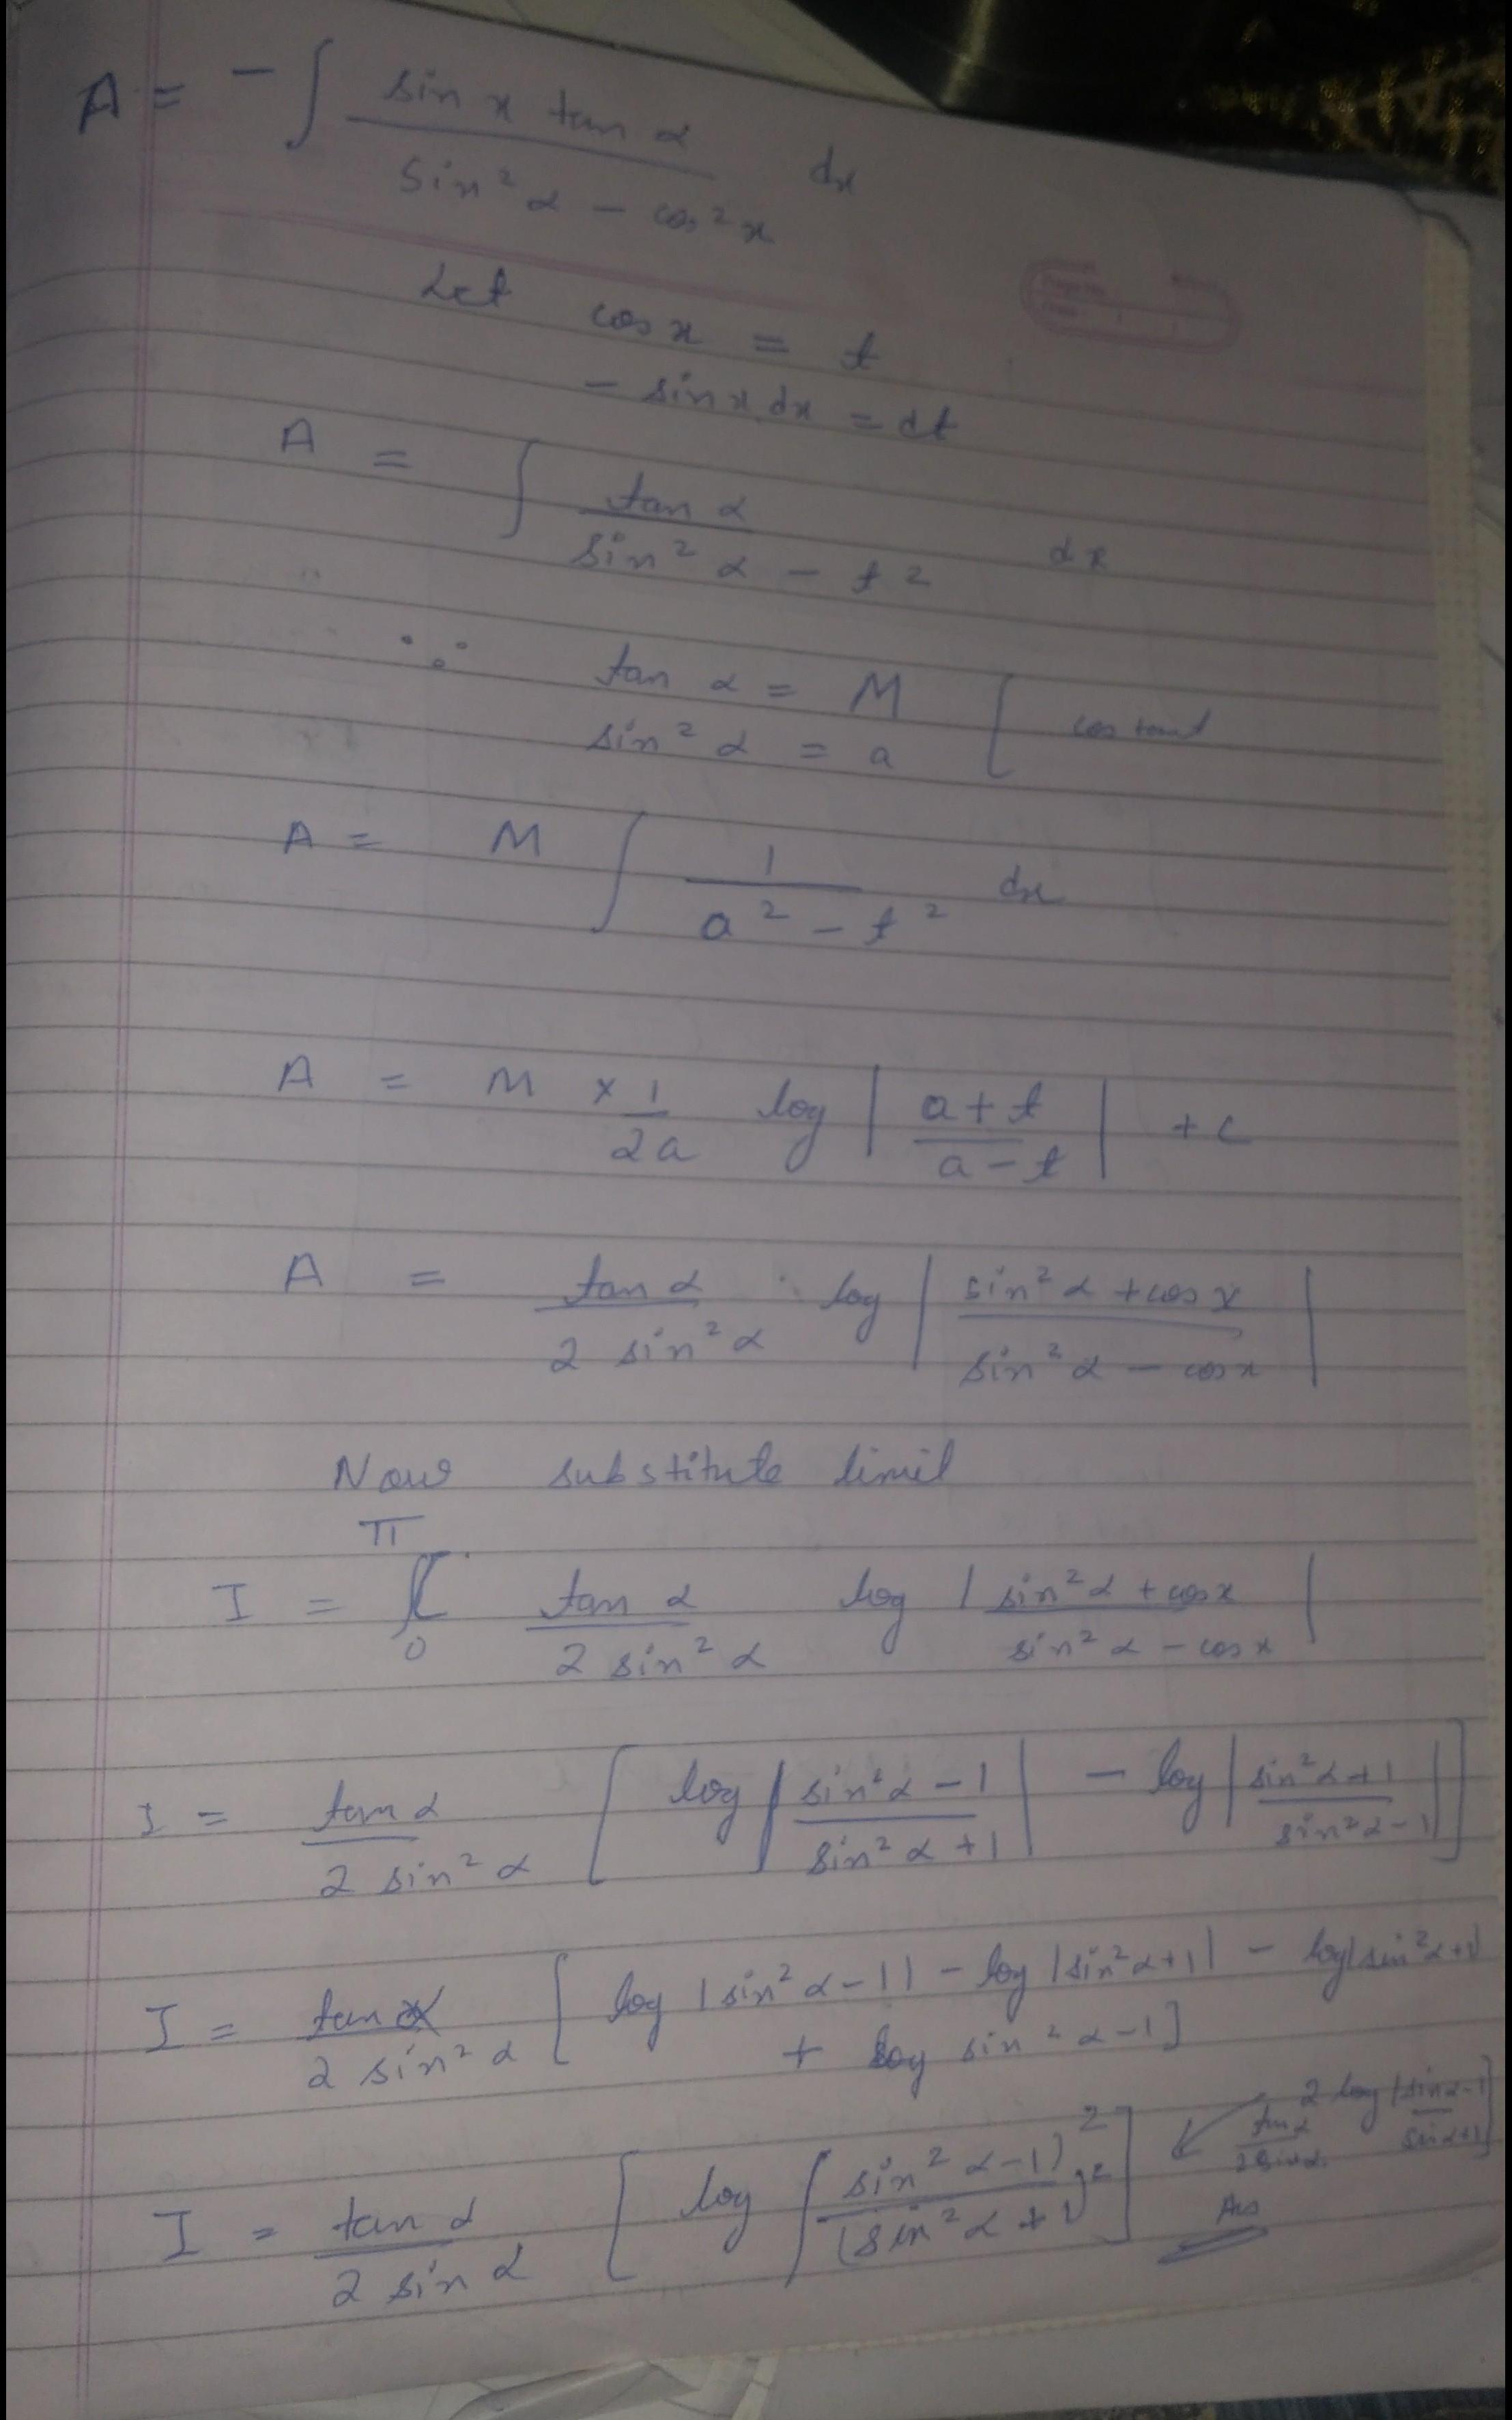 A = - ∫ sin x tan α / sin² α - cos² x dx
Let cos x = t
- sin x dx = dt
A = ∫ tan α / sin² α - t² dx
∵ tan α = M
sin² α = a [ constant
A = M ∫ 1 / a² - t² dx
A = M × 1 / 2a log | a + t / a - t | + c
A = tan α / 2 sin² α · log | sin² α + cos x / sin² α - cos x |
Now substitute limit
I = π [ 0 tan α / 2 sin² α log | sin² α + cos x / sin² α - cos x |
I = tan α / 2 sin² α [ log | sin² α - 1 / sin² α + 1 | - log | sin² α + 1 / sin² α - 1 | ]
I = tan α / 2 sin² α [ log | sin² α - 1 | - log | sin² α + 1 | - log | sin² α + 1 |
+ log sin² α - 1 ]
2 log | sin α - 1 / sin α + 1 |
tan α / 2 sin α
I = tan α / 2 sin α [ log | sin² α - 1 )² / ( sin² α + 1 )² ]
Ans